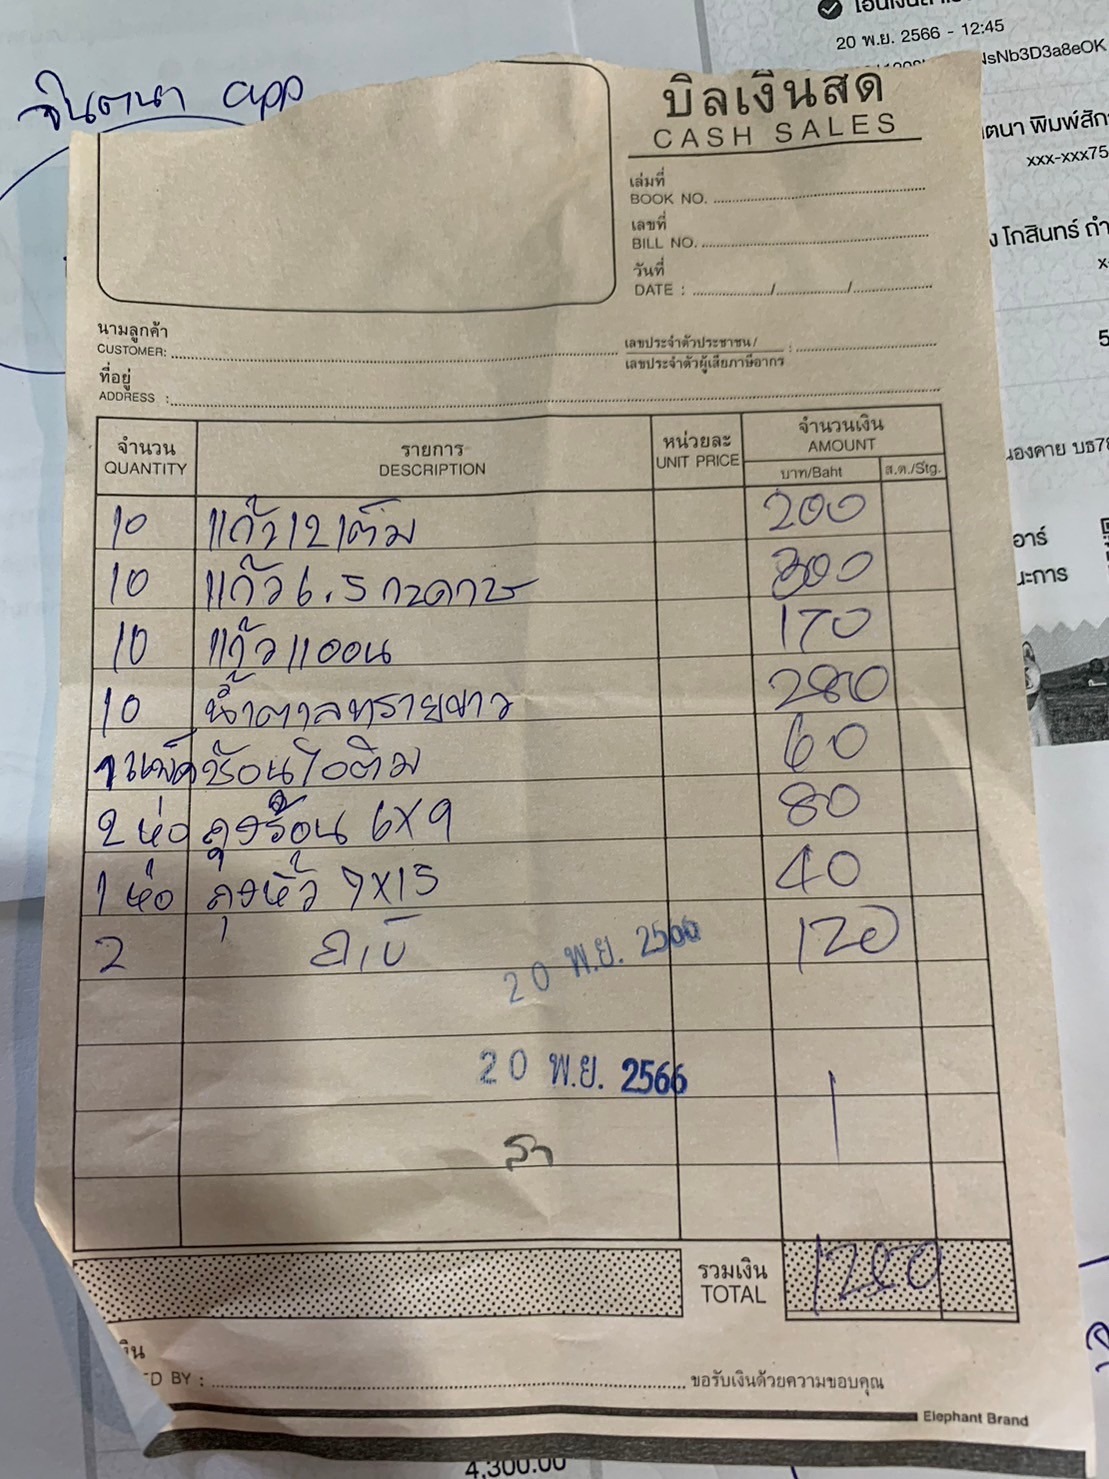 โอนเงินสำเร็จ
20 พ.ย. 2566 - 12:45
NsNb3D3a8eOK
จินตนา app
บิลเงินสด
CASH SALES
ตนา พิมพ์สัก
xxx-xxx75
เล่มที่
BOOK NO.
เลขที่
BILL NO.
โกสินทร์ ถำ
วันที่
DATE : / /
นามลูกค้า
CUSTOMER:
เลขประจำตัวประชาชน/
เลขประจำตัวผู้เสียภาษีอากร :
ที่อยู่
ADDRESS :
จำนวน รายการ หน่วยละ จำนวนเงิน
QUANTITY DESCRIPTION UNIT PRICE AMOUNT
บาท/Baht ส.ต./Stg.
องคาย บธ78
10 แก้ว 12 เต็ม 200
10 แก้ว 6.5 กะดาษ 300
10 แก้วแออน 170
10 น้ำตาลทรายขาว 280
1 แพ็ค ช้อนไอติม 60
2 ห่อ ถุงร้อน 6X9 80
1 ห่อ ถุงหิ้ว 7X15 40
2 120
20 พ.ย. 2566
20 พ.ย. 2566
รวมเงิน
TOTAL 1250
เงิน
ED BY : ขอรับเงินด้วยความขอบคุณ
Elephant Brand
4,300.00